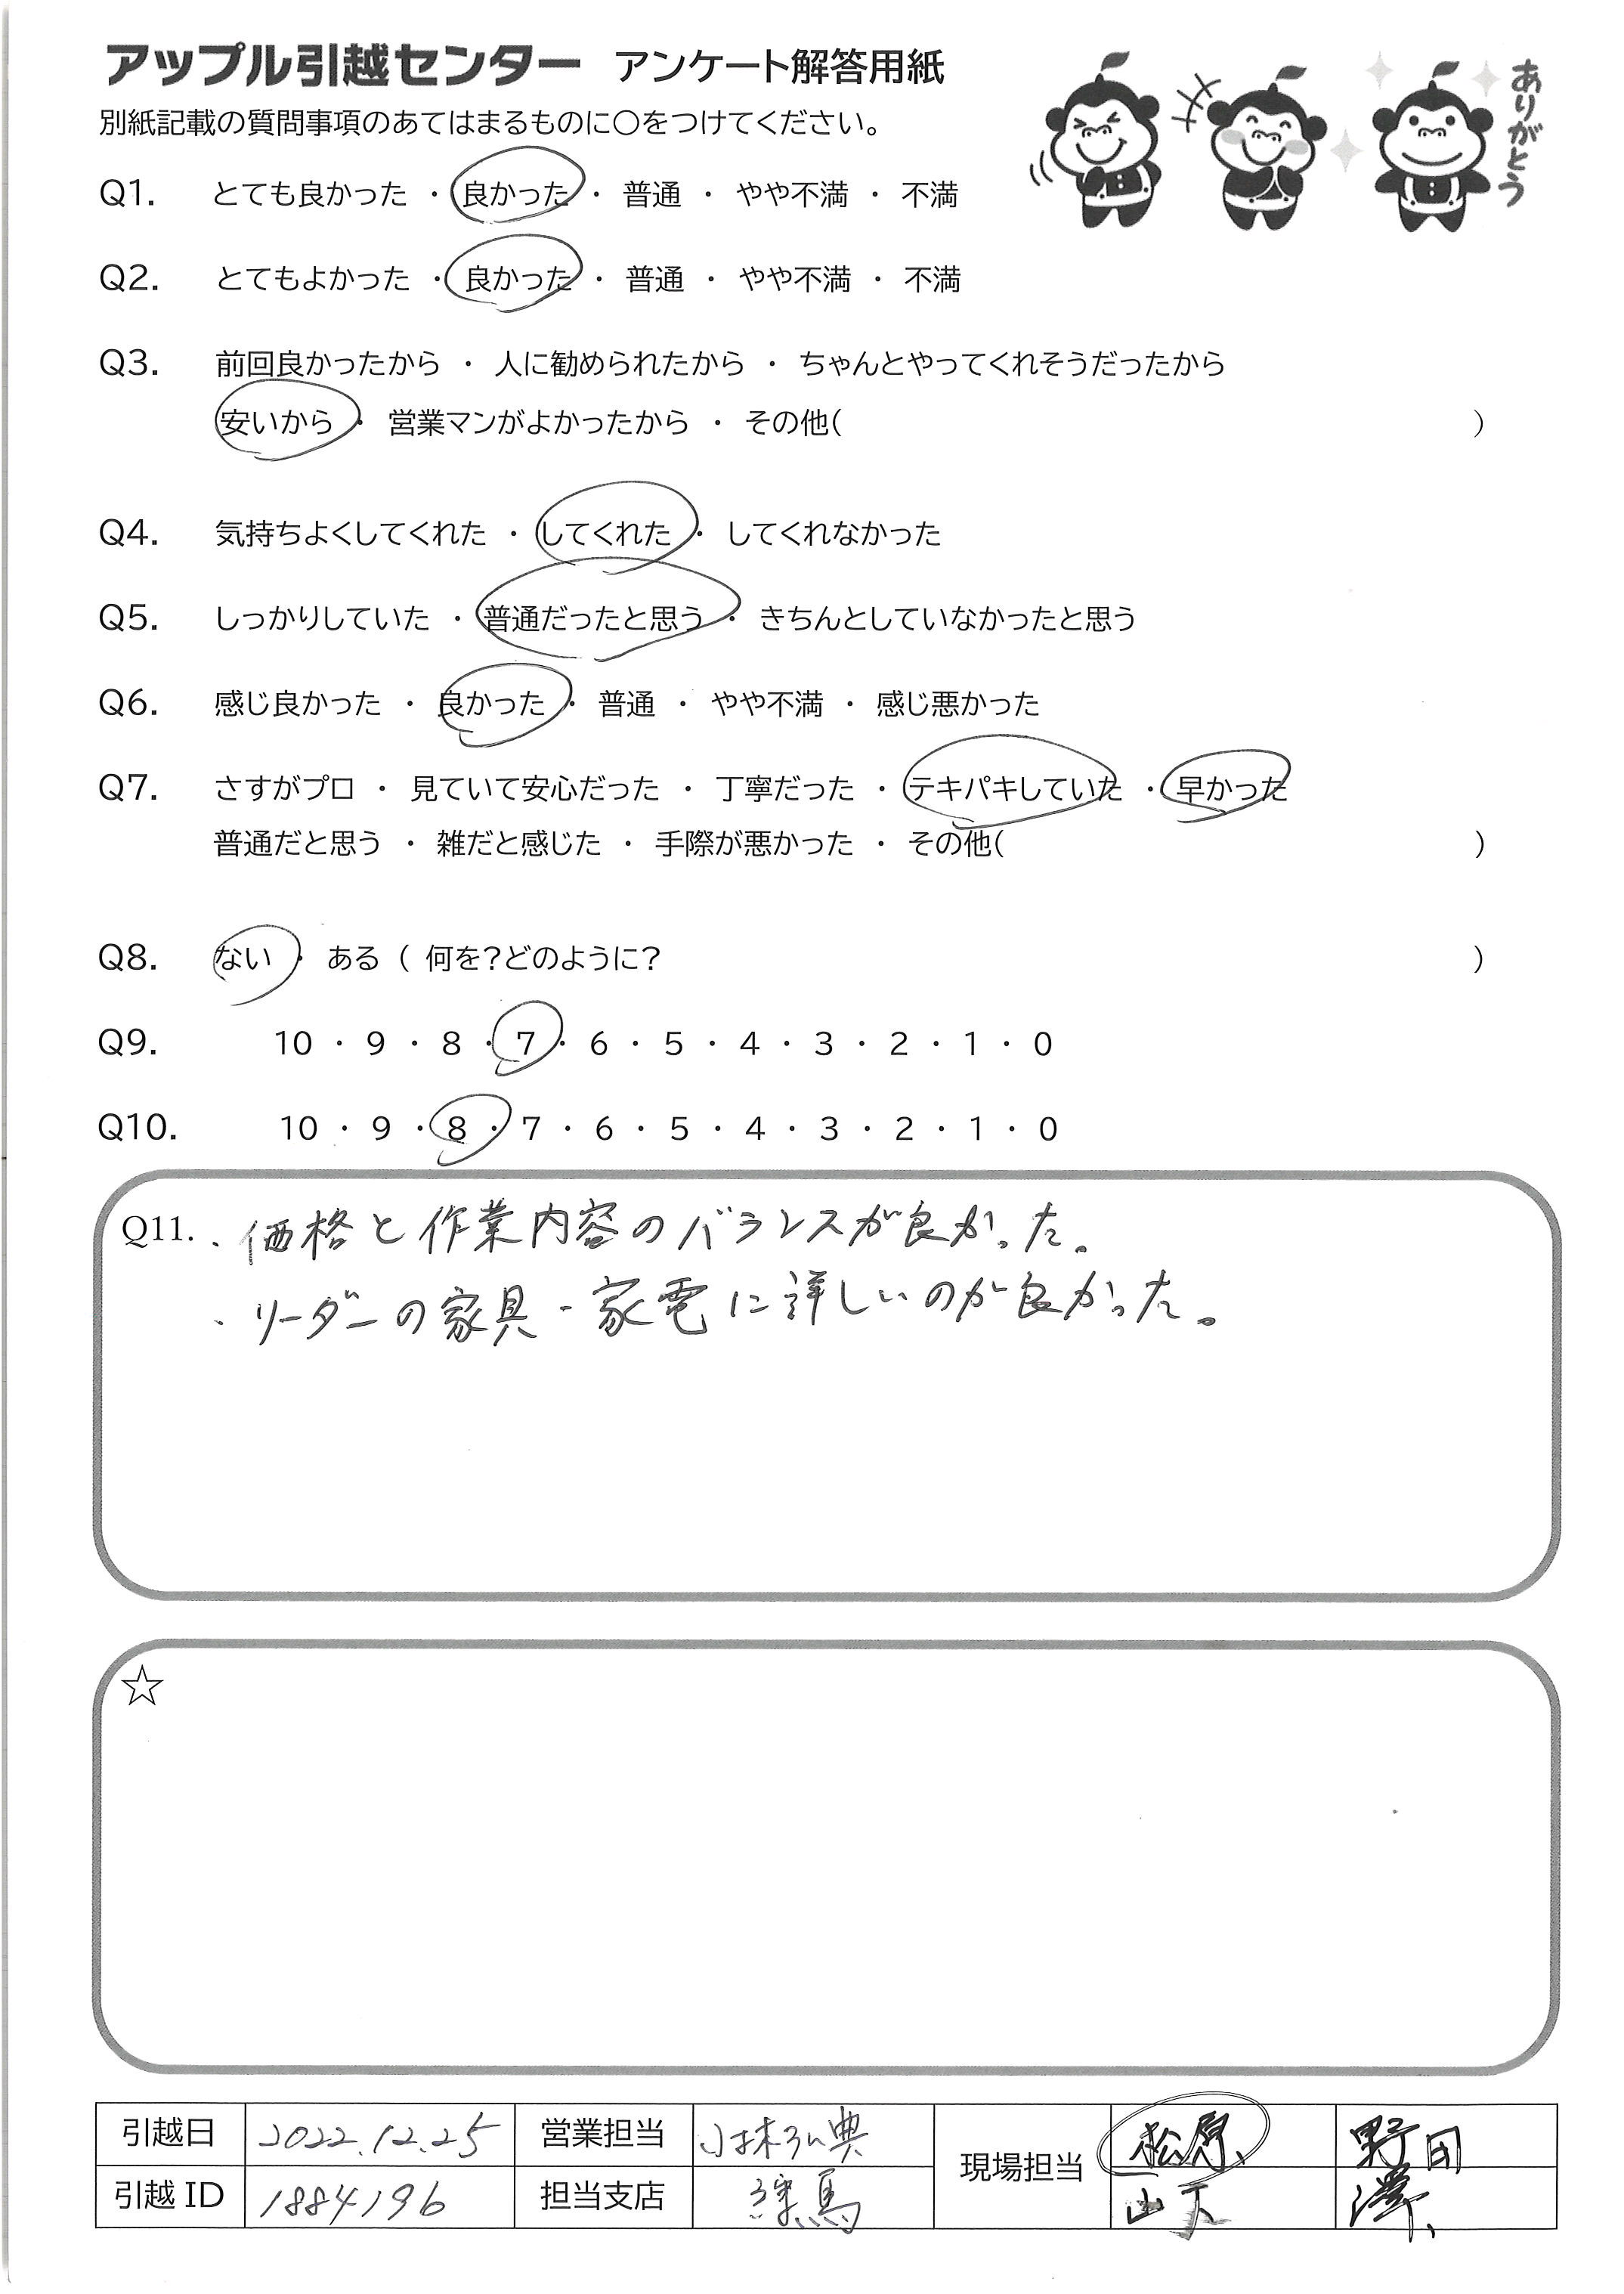 アップル引越センター アンケート解答用紙
ありがとう
別紙記載の質問事項のあてはまるものに○をつけてください。
Q1. とても良かった ・ 良かった ・ 普通 ・ やや不満 ・ 不満
Q2. とてもよかった ・ 良かった ・ 普通 ・ やや不満 ・ 不満
Q3. 前回良かったから ・ 人に勧められたから ・ ちゃんとやってくれそうだったから
安いから ・ 営業マンがよかったから ・ その他( )
Q4. 気持ちよくしてくれた ・ してくれた ・ してくれなかった
Q5. しっかりしていた ・ 普通だったと思う ・ きちんとしていなかったと思う
Q6. 感じ良かった ・ 良かった ・ 普通 ・ やや不満 ・ 感じ悪かった
Q7. さすがプロ ・ 見ていて安心だった ・ 丁寧だった ・ テキパキしていた ・ 早かった
普通だと思う ・ 雑だと感じた ・ 手際が悪かった ・ その他( )
Q8. ない ・ ある ( 何を?どのように? )
Q9. 10 ・ 9 ・ 8 ・ 7 ・ 6 ・ 5 ・ 4 ・ 3 ・ 2 ・ 1 ・ 0
Q10. 10 ・ 9 ・ 8 ・ 7 ・ 6 ・ 5 ・ 4 ・ 3 ・ 2 ・ 1 ・ 0
Q11. ・価格と作業内容のバランスが良かった。
・リーダーの家具・家電に詳しいのが良かった。
☆
引越日 2022.12.25 営業担当 小林弘典 現場担当 松原、 野田
引越ID 1884196 担当支店 練馬 山下 澤、